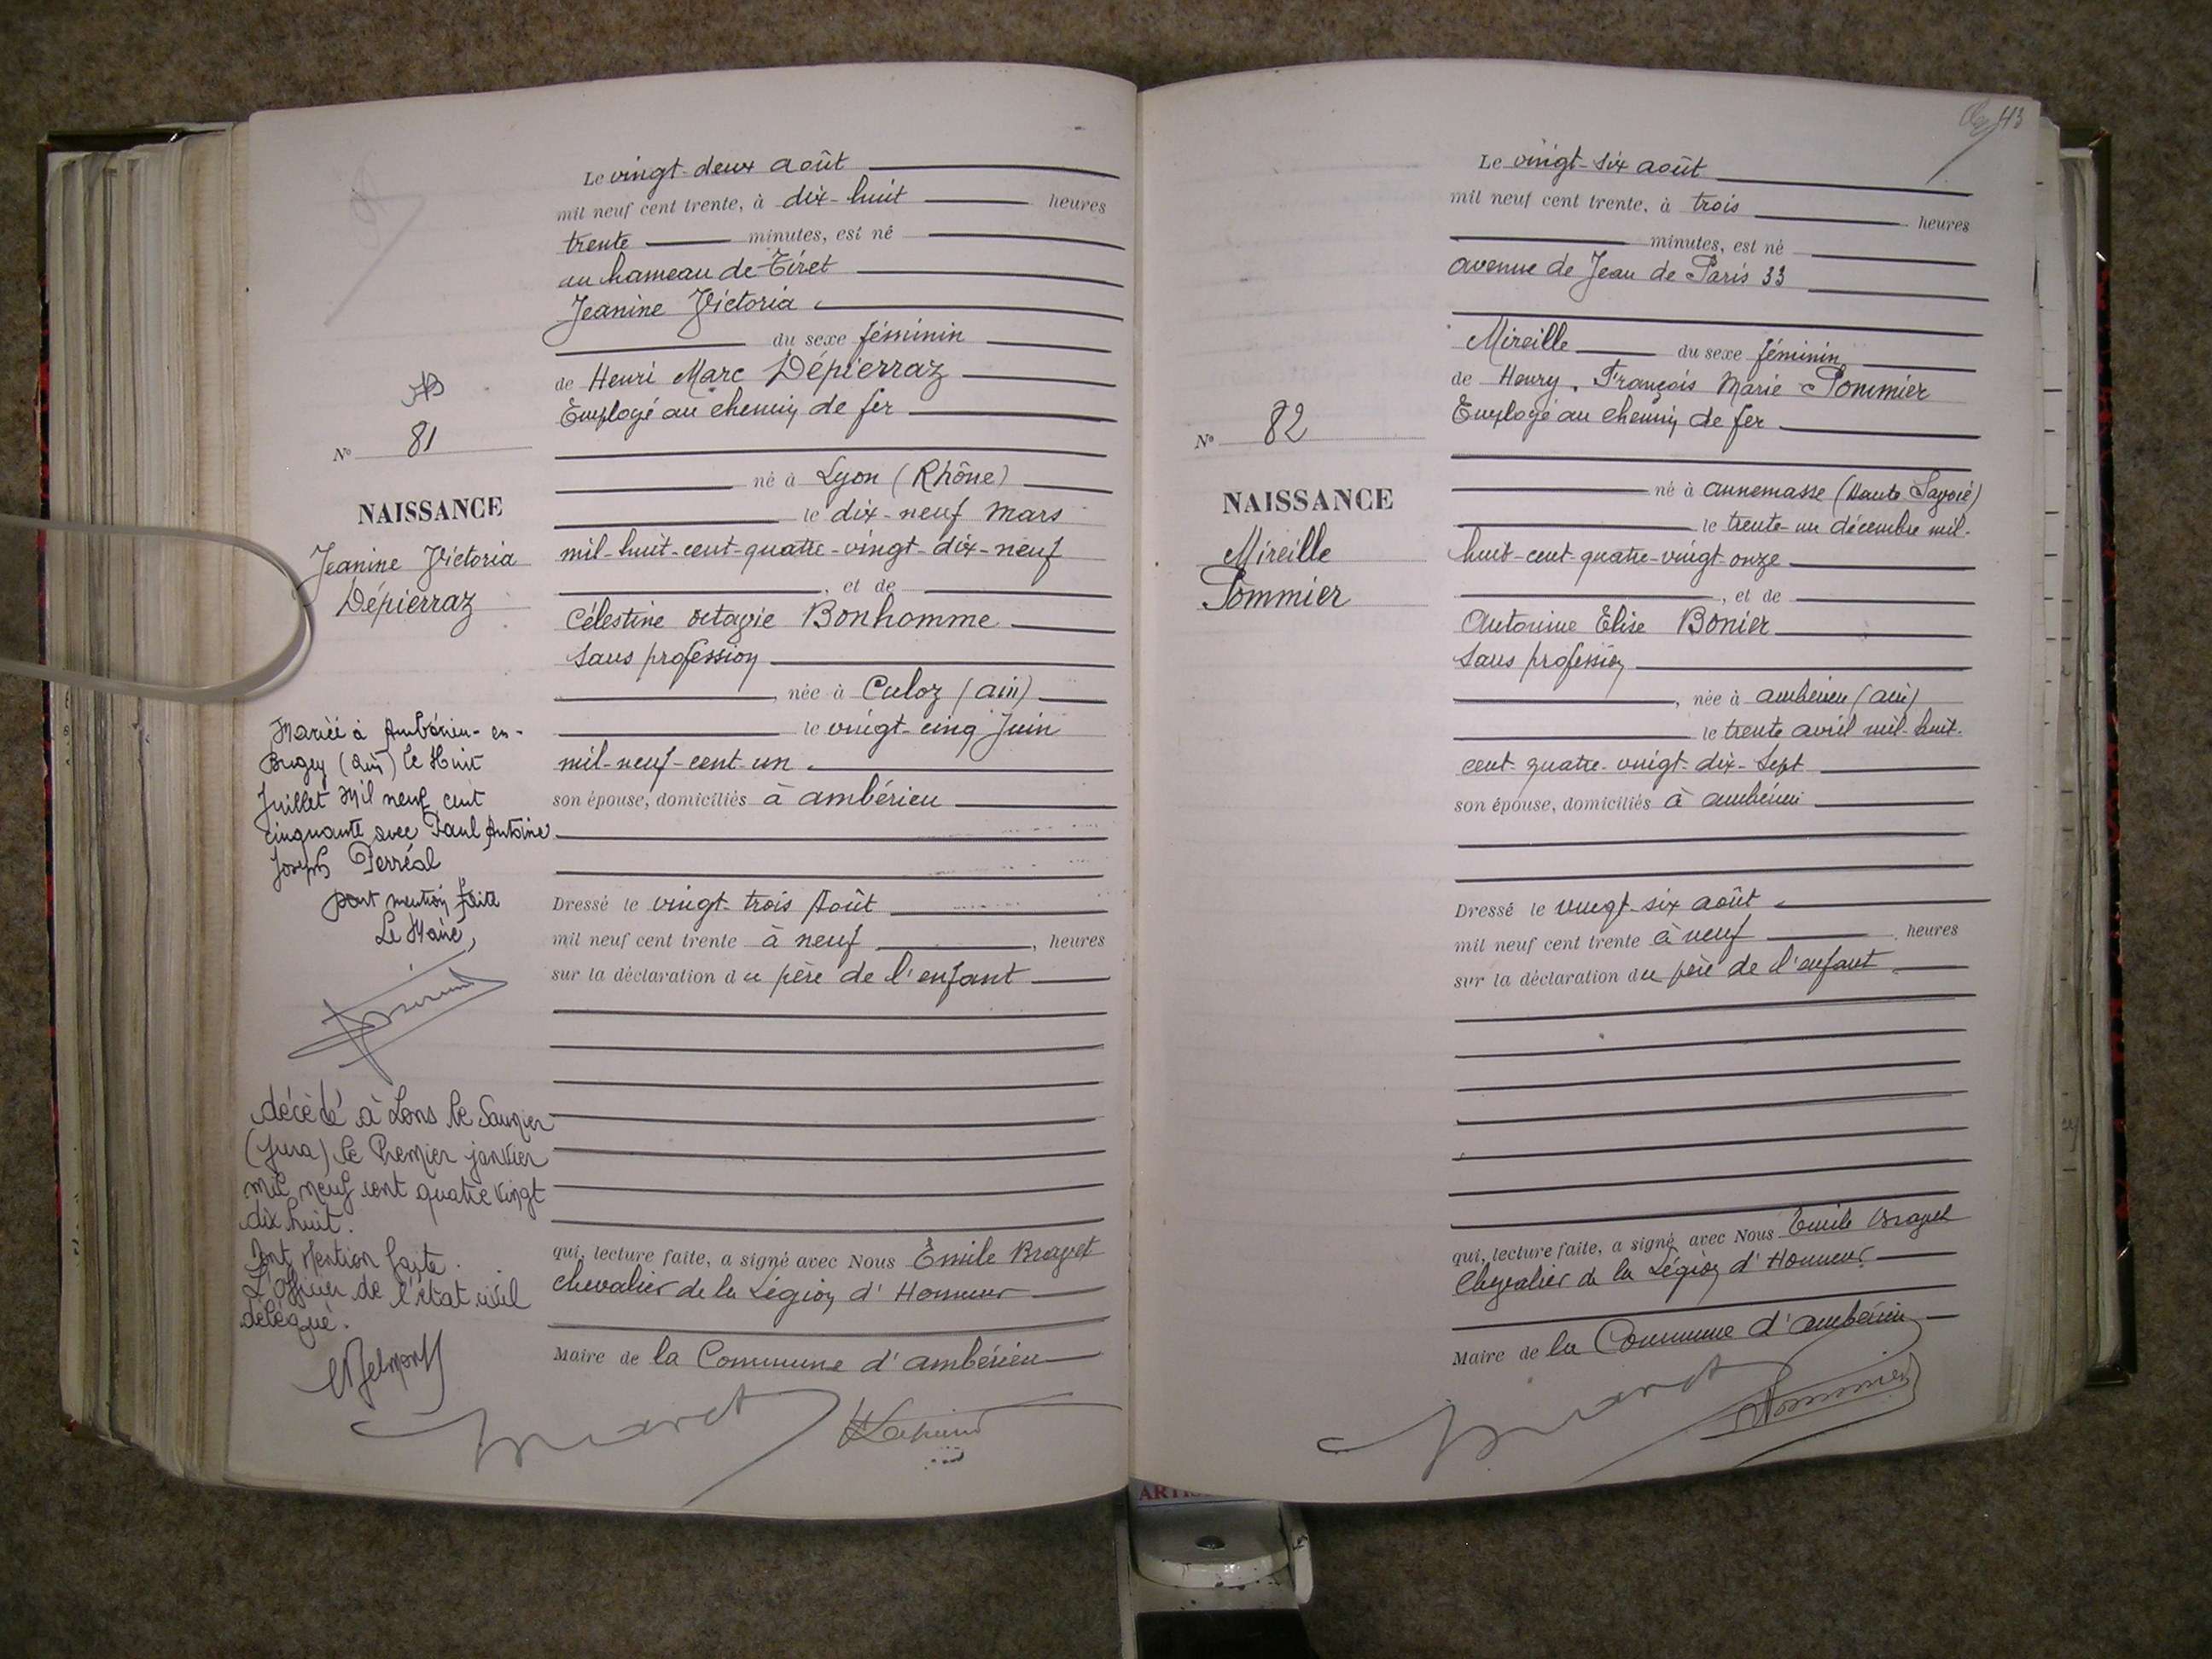 Le vingt-deux août
mil neuf cent trente, à dix-huit heures
trente minutes, est né
au hameau de Tiret
Jeanine Victoria
du sexe féminin
de Henri Marc Dépierraz
Employé au chemin de fer
N° 81
né à Lyon (Rhône)
NAISSANCE
le dix-neuf Mars
mil-huit-cent-quatre-vingt-dix-neuf
Jeanine Victoria
Dépierraz
, et de
Célestine Octavie Bonhomme
Sans profession
, née à Culoz (Ain)
le vingt-cinq Juin
mil-neuf-cent-un
son épouse, domiciliés à Ambérieu
Mariée à Ambérieu-en-
Bugey (Ain) le Huit
Juillet Mil neuf cent
cinquante avec Paul Antoine
Joseph Perréal
Dont mention faite
Le Maire,
Dressé le vingt-trois Août
mil neuf cent trente à neuf , heures
sur la déclaration du père de l'enfant
décédé à Lons le Saunier
(Jura) le Premier janvier
mil neuf cent quatre vingt
dix huit.
Dont Mention faite.
L'Officier de l'état civil
délégué.
qui, lecture faite, a signé avec Nous Émile Bravet
Chevalier de la Légion d'Honneur
Maire de la Commune d'Ambérieu
43
Le vingt-six août
mil neuf cent trente, à trois heures
minutes, est né
avenue de Jean de Paris 33
Mireille du sexe féminin
de Henry, François Marie Pommier
Employé au chemin de fer
N° 82
né à Annemasse (Haute Savoie)
NAISSANCE
le trente-un décembre mil-
Mireille
huit-cent-quatre-vingt-onze
Pommier
, et de
Antonine Élise Bonier
Sans profession
, née à Ambérieu (Ain)
le trente avril mil-huit-
cent-quatre-vingt-dix-Sept
son épouse, domiciliés à Ambérieu
Dressé le vingt-six août
mil neuf cent trente à neuf , heures
sur la déclaration du père de l'enfant
qui, lecture faite, a signé avec Nous Émile Bravet
Chevalier de la Légion d'Honneur
Maire de la Commune d'Ambérieu
Pommier